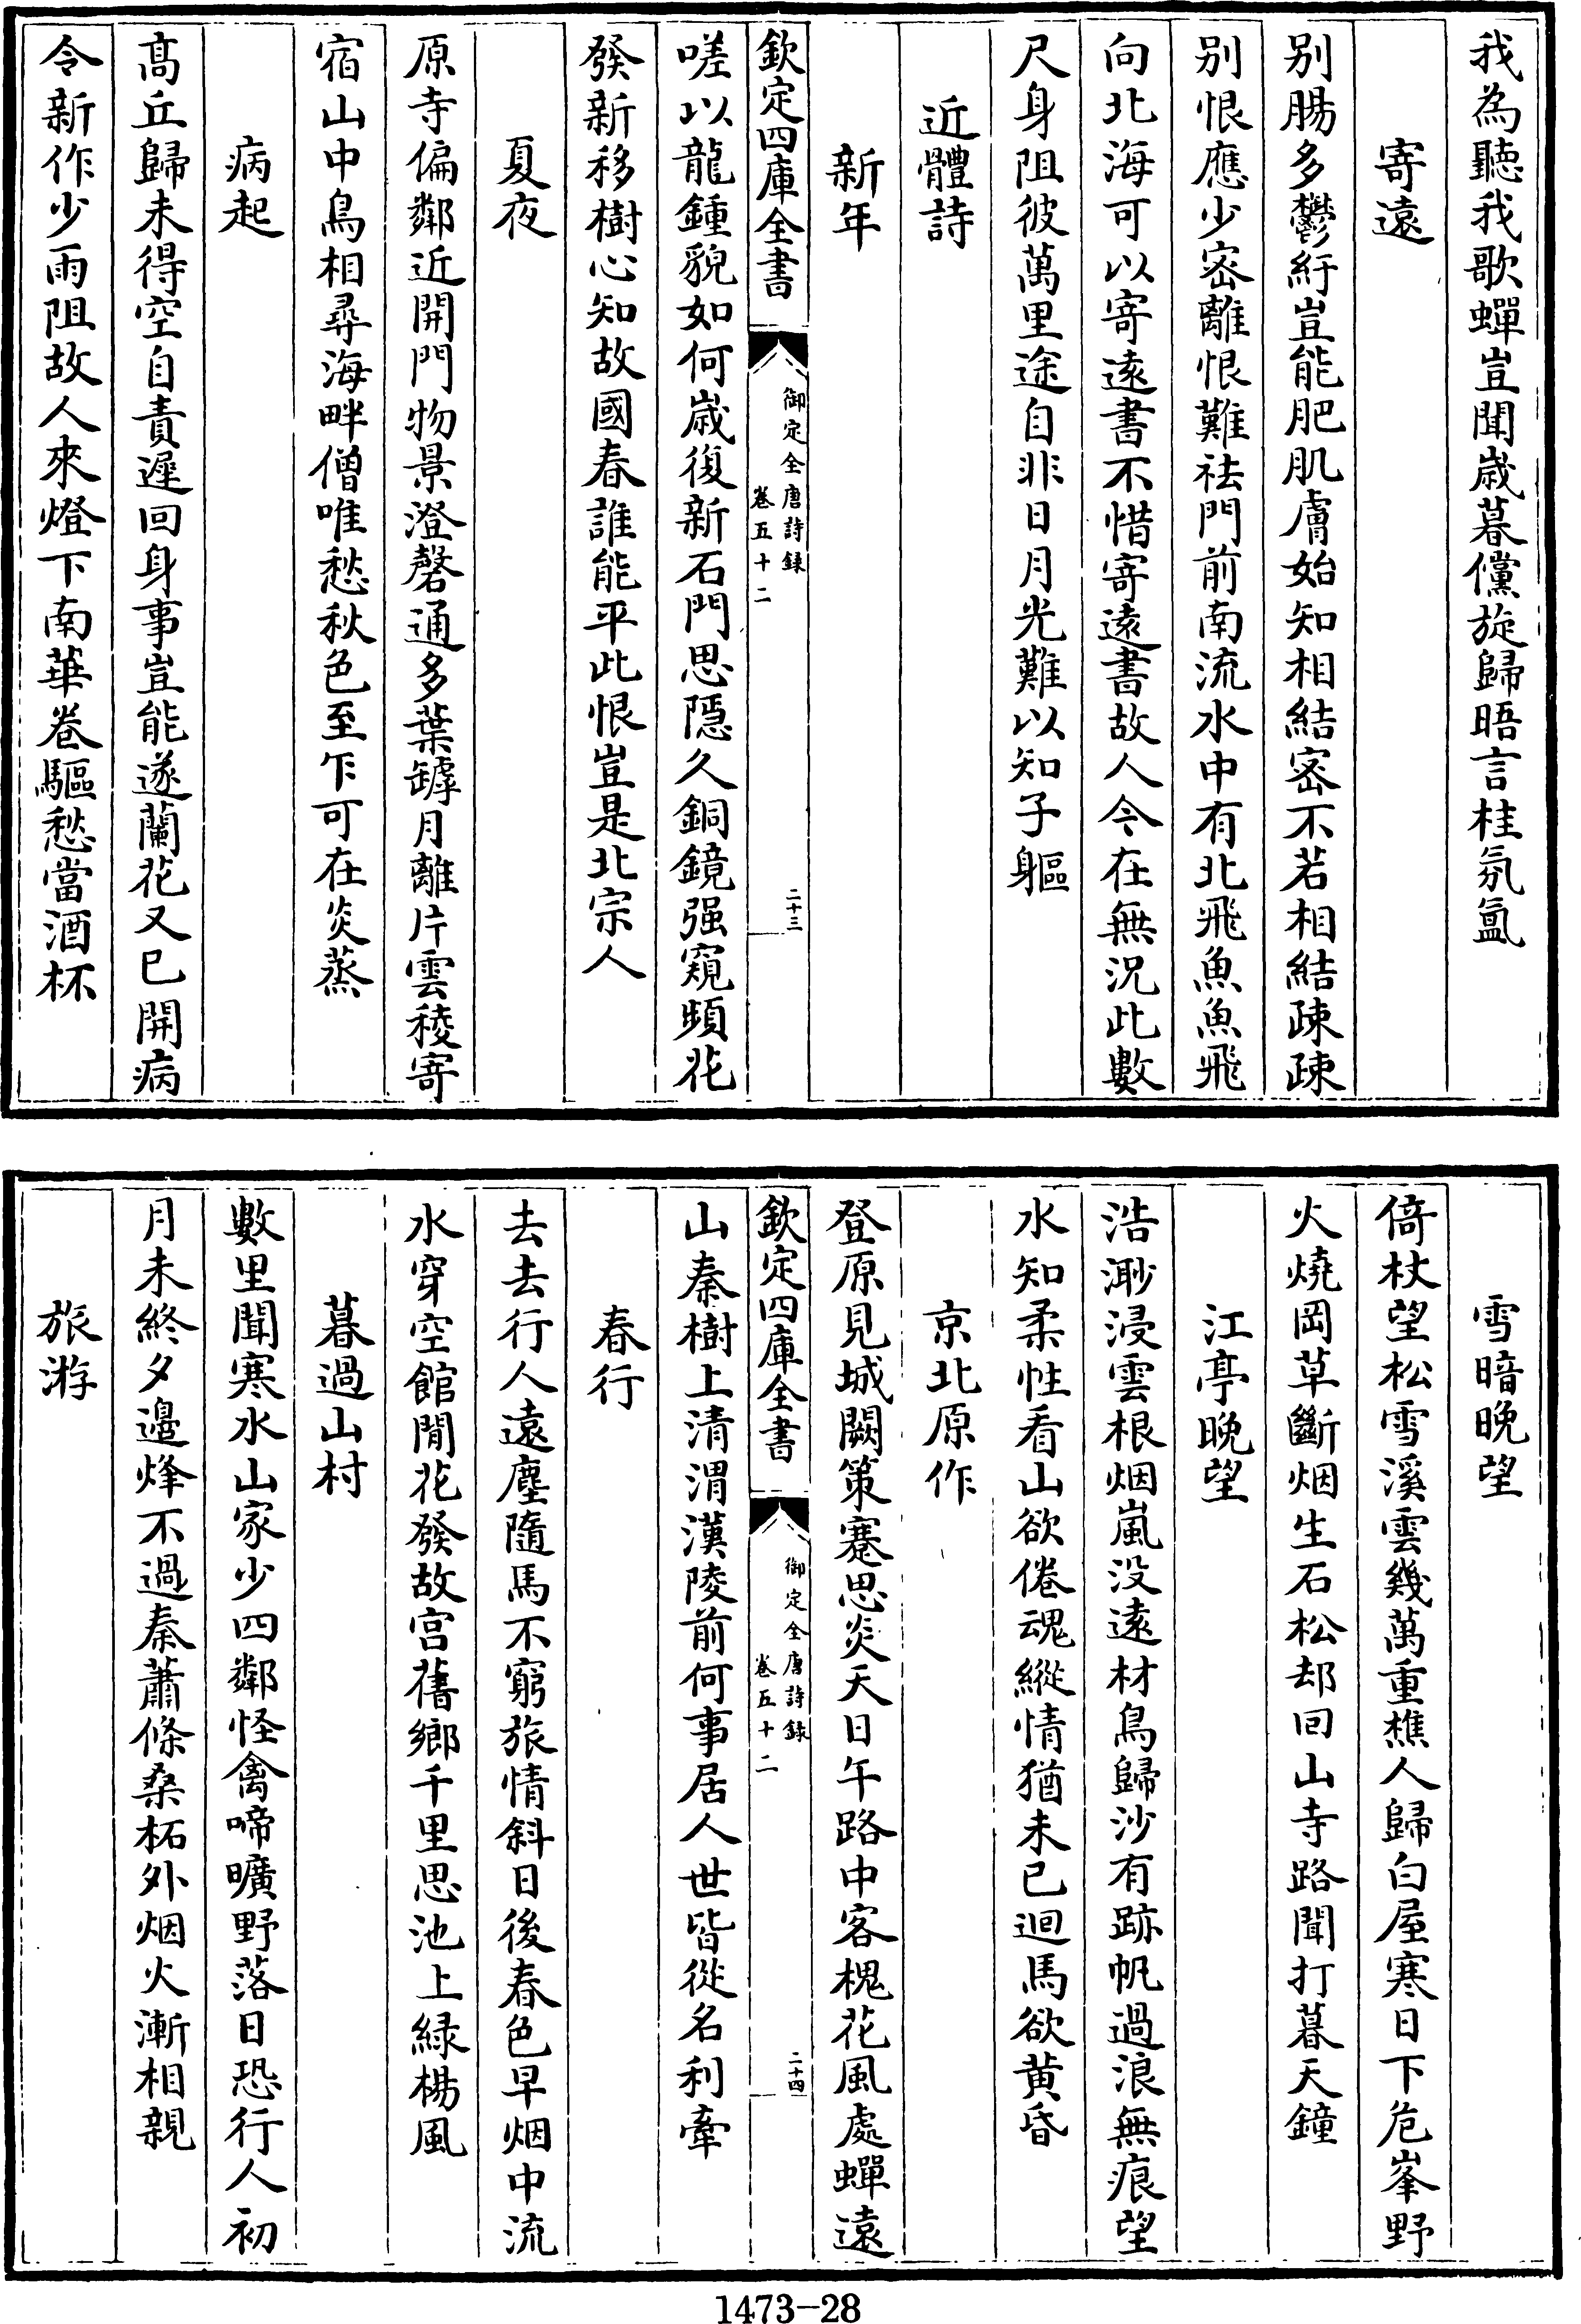 我為聽我歌蟬豈聞歲暮儻旋歸晤言桂氛氳
寄遠
别腸多鬱紆豈能肥肌膚始知相結密不若相結疎疎
别恨應少密離恨難祛門前南流水中有北飛魚魚飛
向北海可以寄遠書不惜寄遠書故人今在無況此數
尺身阻彼萬里途自非日月光難以知子軀
近體詩
新年
欽定四庫全書
御定全唐詩録
卷五十二
二十三
嗟以龍鍾貌如何歲復新石門思隱久銅鏡强窺頻花
發新移樹心知故國春誰能平此恨豈是北宗人
夏夜
原寺偏鄰近開門物景澄磬通多葉罅月離片雲稜寄
宿山中鳥相尋海畔僧唯愁秋色至乍可在炎蒸
病起
髙丘歸未得空自責遲回身事豈能遂蘭花又已開病
令新作少雨阻故人來燈下南華卷驅愁當酒杯
雪暗晚望
倚杖望松雪溪雲幾萬重樵人歸白屋寒日下危峯野
火燒岡草斷烟生石松却回山寺路聞打暮天鐘
江亭晚望
浩渺浸雲根烟嵐没遠材鳥歸沙有跡帆過浪無痕望
水知柔性看山欲倦魂縱情猶未已迴馬欲黄昏
京北原作
登原見城闕策蹇思炎天日午路中客槐花風處蟬遠
欽定四庫全書
御定全唐詩録
卷五十二
二十四
山秦樹上清渭漢陵前何事居人世皆從名利牽
春行
去去行人遠塵隨馬不窮旅情斜日後春色早烟中流
水穿空館閒花發故宫舊鄉千里思池上緑楊風
暮過山村
數里聞寒水山家少四鄰怪禽啼曠野落日恐行人初
月未終夕邊烽不過秦蕭條桑柘外烟火漸相親
旅游
1473-28